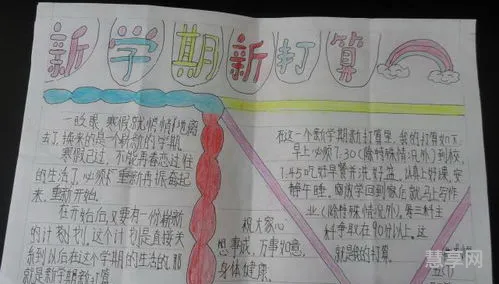 新学期新打算
一眨眼，寒假就悄悄地离
去了，换来的是个崭新的学期。
寒假已过，不能再春恋过往
的生活了，必须重新再振奋起
来，重新开始。
在开始后，又要有一份崭新
的计划，这个计划是直接关
系到以后在这个学期的生活的。那
就是新学期新打算
祝大家心
想事成，万事如意，
身体健康。
在这一个新学期新打算里，我的打算如下，
早上必须7.30（除特殊情况外）到校，
1.45吃好早餐并洗好
认真上好课，安
静午睡。
放学回到家后就马上写作
业（除特殊情况外）。第三科主
科争取在90分以上。这
就是我的打算。
慧享网